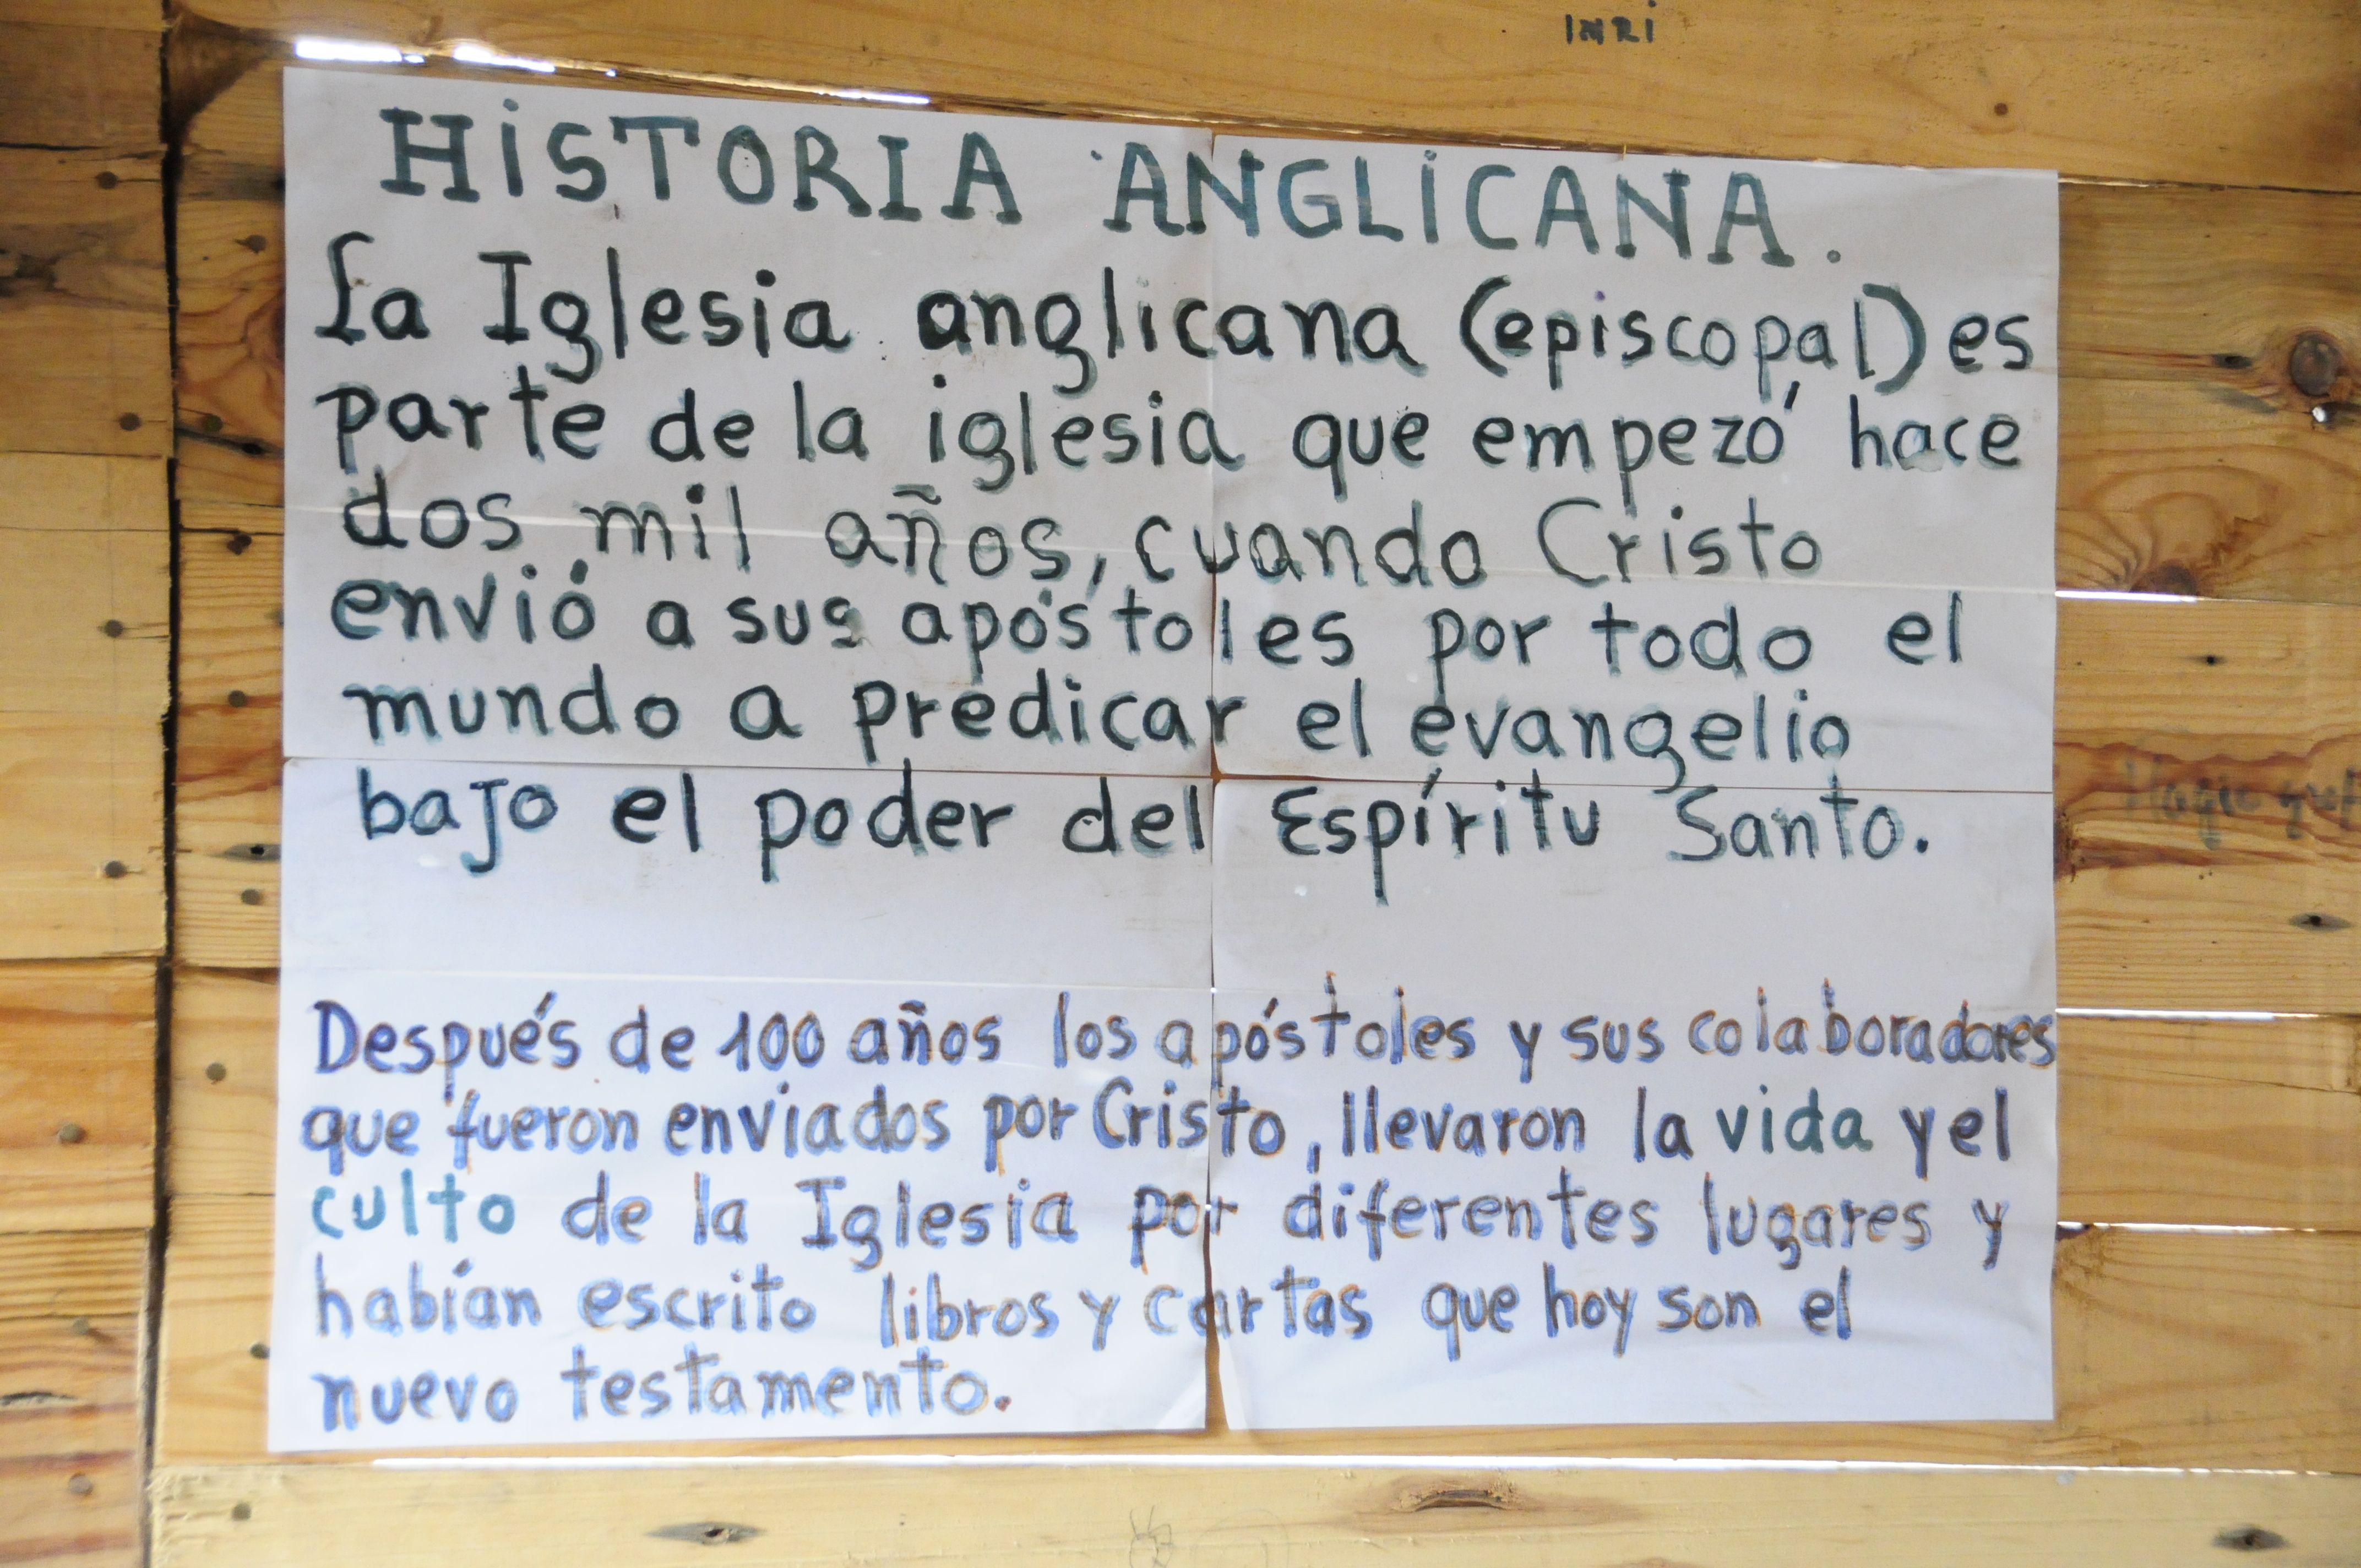 INRI
HISTORIA ANGLICANA.
La Iglesia anglicana (episcopal) es
parte de la iglesia que empezó hace
dos mil años, cuando Cristo
envió a sus apóstoles por todo el
mundo a predicar el evangelio
bajo el poder del Espíritu Santo.
Después de 100 años los apóstoles y sus colaboradores
que fueron enviados por Cristo, llevaron la vida y el
culto de la Iglesia por diferentes lugares y
habían escrito libros y cartas que hoy son el
nuevo testamento.